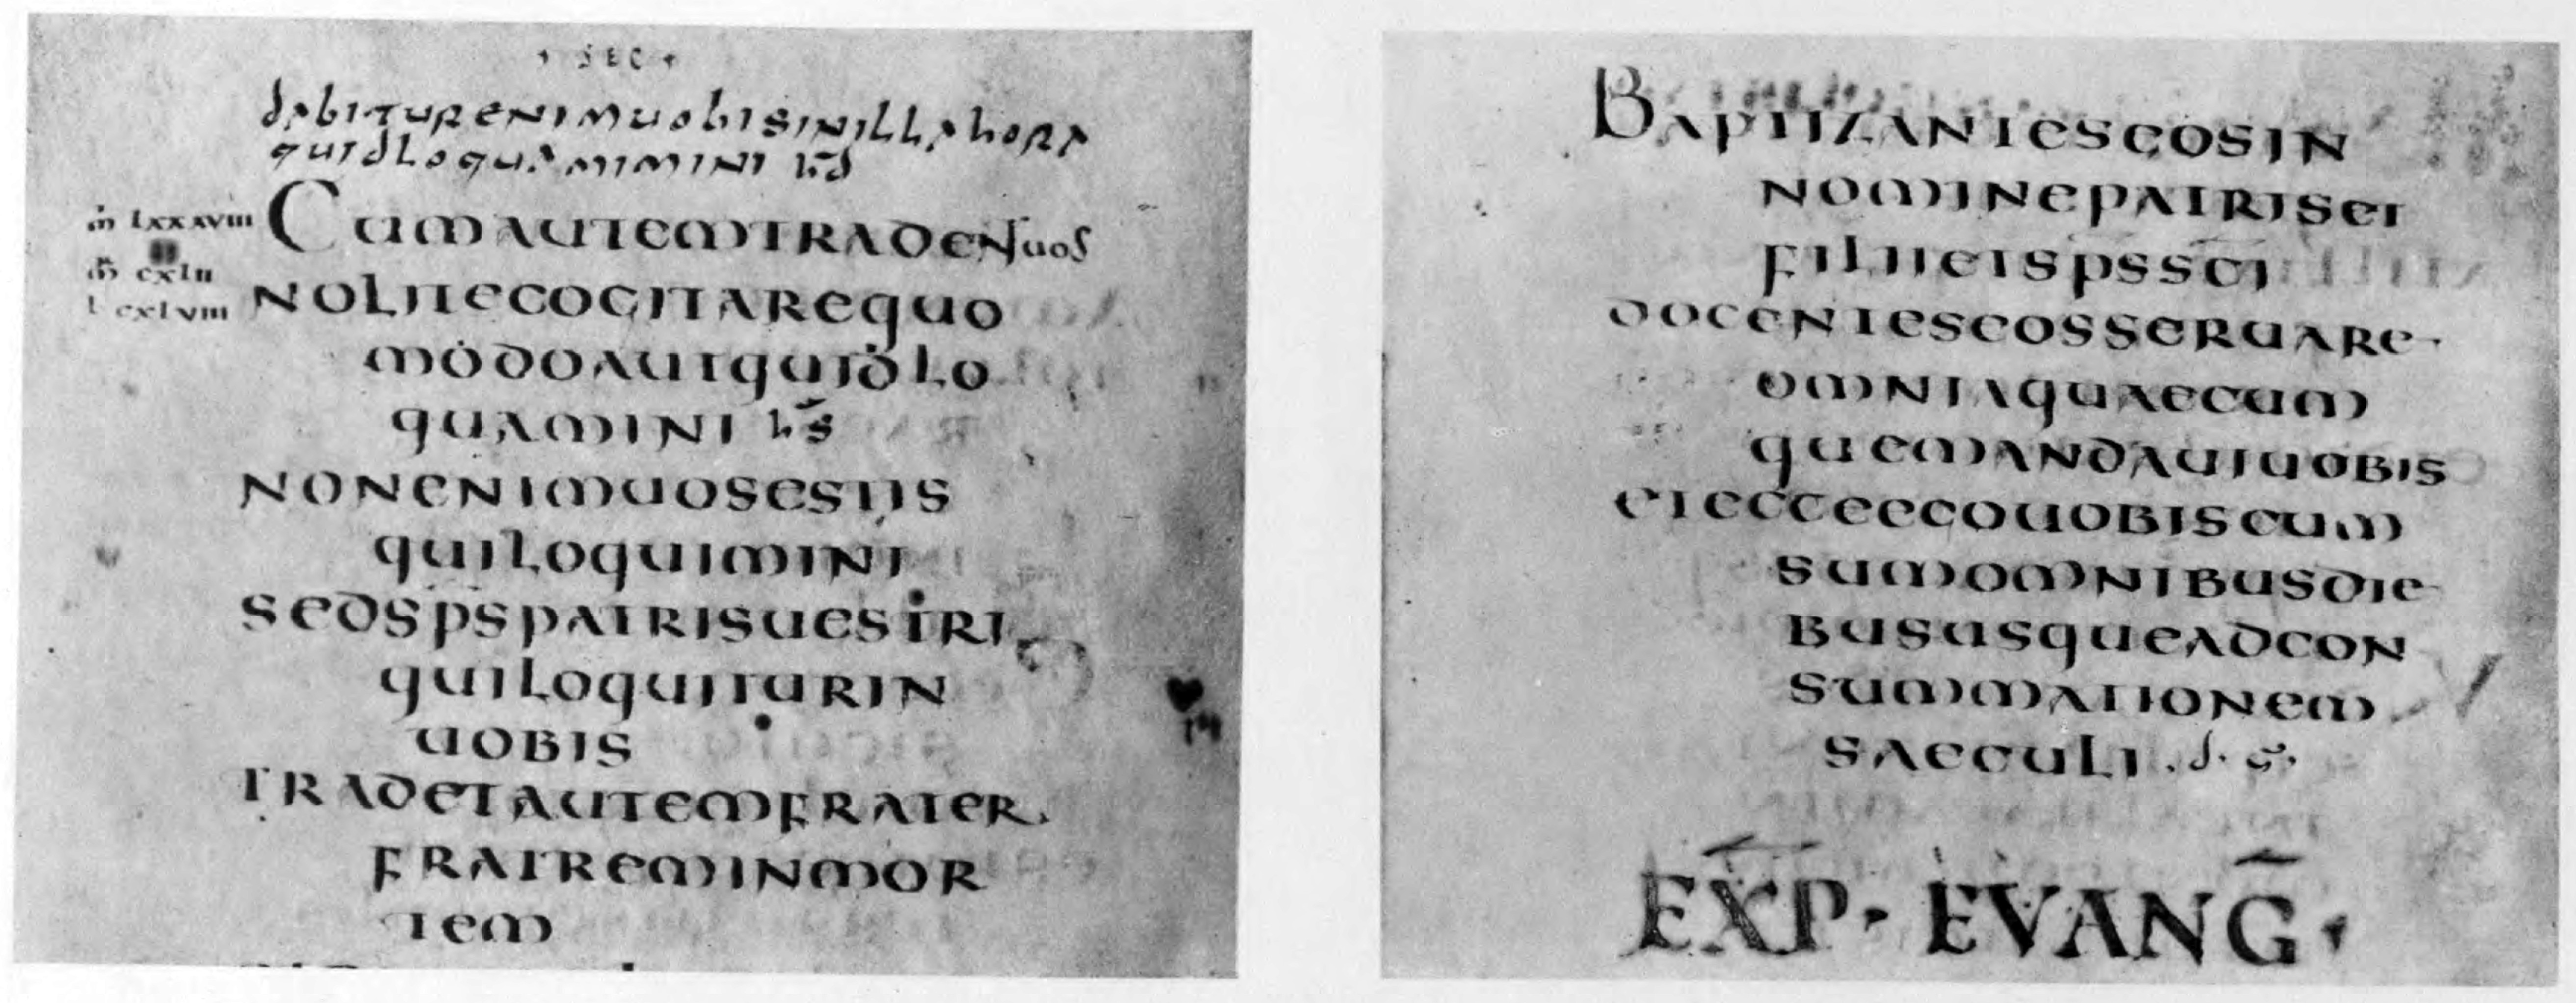 · SEC ·
dabiturenimuobisinillahora
quidloquamini hd
m lxxxviii
CUMAUTEMTRADENSuos
m cxlii
l cxlviii
NOLITECOGITAREQUO
MODOAUTQUIDLO
QUAMINI hs
NONENIMUOSESTIS
QUILOQUIMINI
SEDSPSPATRISUESTRI
QUILOQUITURIN
UOBIS
TRADETAUTEMFRATER
FRATREMINMOR
TEM
BAPTIZANTESEOSIN
NOMINEPATRISET
FILIIETSPSSCI
DOCENTESEOSSERUARE
OMNIAQUAECUM
QUEMANDAUIUOBIS
ETECCEEGOUOBISCUM
SUMOMNIBUSDIE
BUSUSQUEADCON
SUMMATIONEM
SAECULI . d . s .
EXP · EVANG ·